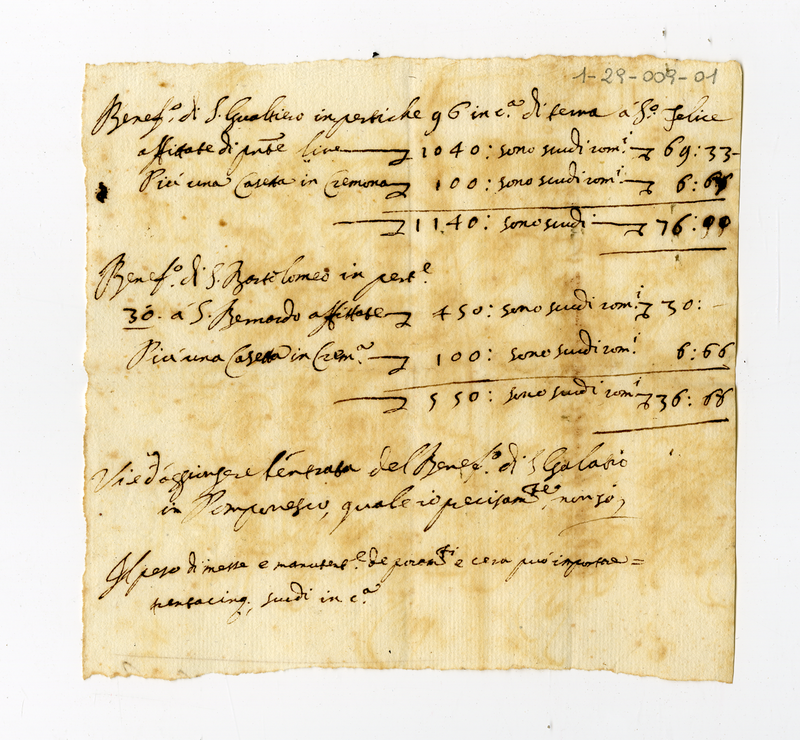 1-29-009-01
Benef.o di S. Gualtiero in pertiche 96 in c.a di terra à S.o Felice
affittate di pnte lire 1040: sono scudi rom.i 69:33
Più una Casetta in Cremona 100: sono scudi rom.i 6:66
1140: sono scudi 76:99
Benef.o di S. Bortolomeo in pert.e
30. à S. Bernardo affittate 450: sono scudi rom.i 30:
Più una Casetta in Crem.a 100: sono scudi rom.i 6:66
550: sono scudi rom.i 36:66
Vi è d'aggiungere l'entrata del Benef.o di S. Galasio
in Pomponesco, quale io precisam.te non sò,
Il peso di messe e manutent.e de param.ti e cera può importare =
trentacinq; scudi in c.a